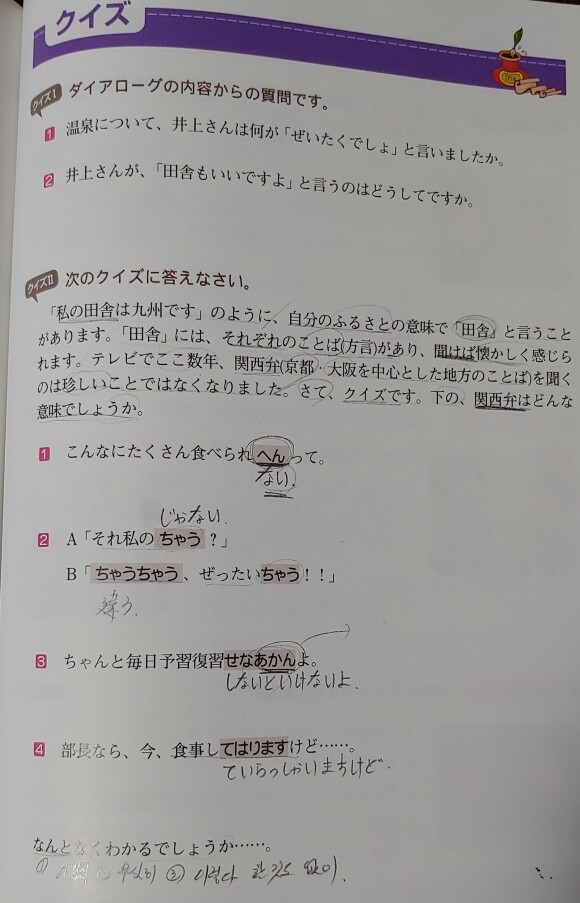 クイズ
クイズⅠ ダイアローグの内容からの質問です。
1 温泉について、井上さんは何が「ぜいたくでしょ」と言いましたか。
2 井上さんが、「田舎もいいですよ」と言うのはどうしてですか。
クイズⅡ 次のクイズに答えなさい。
「私の田舎は九州です」のように、自分のふるさとの意味で「田舎」と言うこと
があります。「田舎」には、それぞれのことば(方言)があり、聞けば懐かしく感じら
れます。テレビでここ数年、関西弁(京都・大阪を中心とした地方のことば)を聞く
のは珍しいことではなくなりました。さて、クイズです。下の、関西弁はどんな
意味でしょうか。
1 こんなにたくさん食べられへんって。
ない.
じゃない.
2 A「それ私のちゃう？」
B「ちゃうちゃう、ぜったいちゃう！！」
違う.
3 ちゃんと毎日予習復習せなあかんよ。
しないといけないよ.
4 部長なら、今、食事してはりますけど……。
ていらっしゃいますけど.
なんとなくわかるでしょうか……。
① 무심히 ② 이렇다 할 것도 없이.